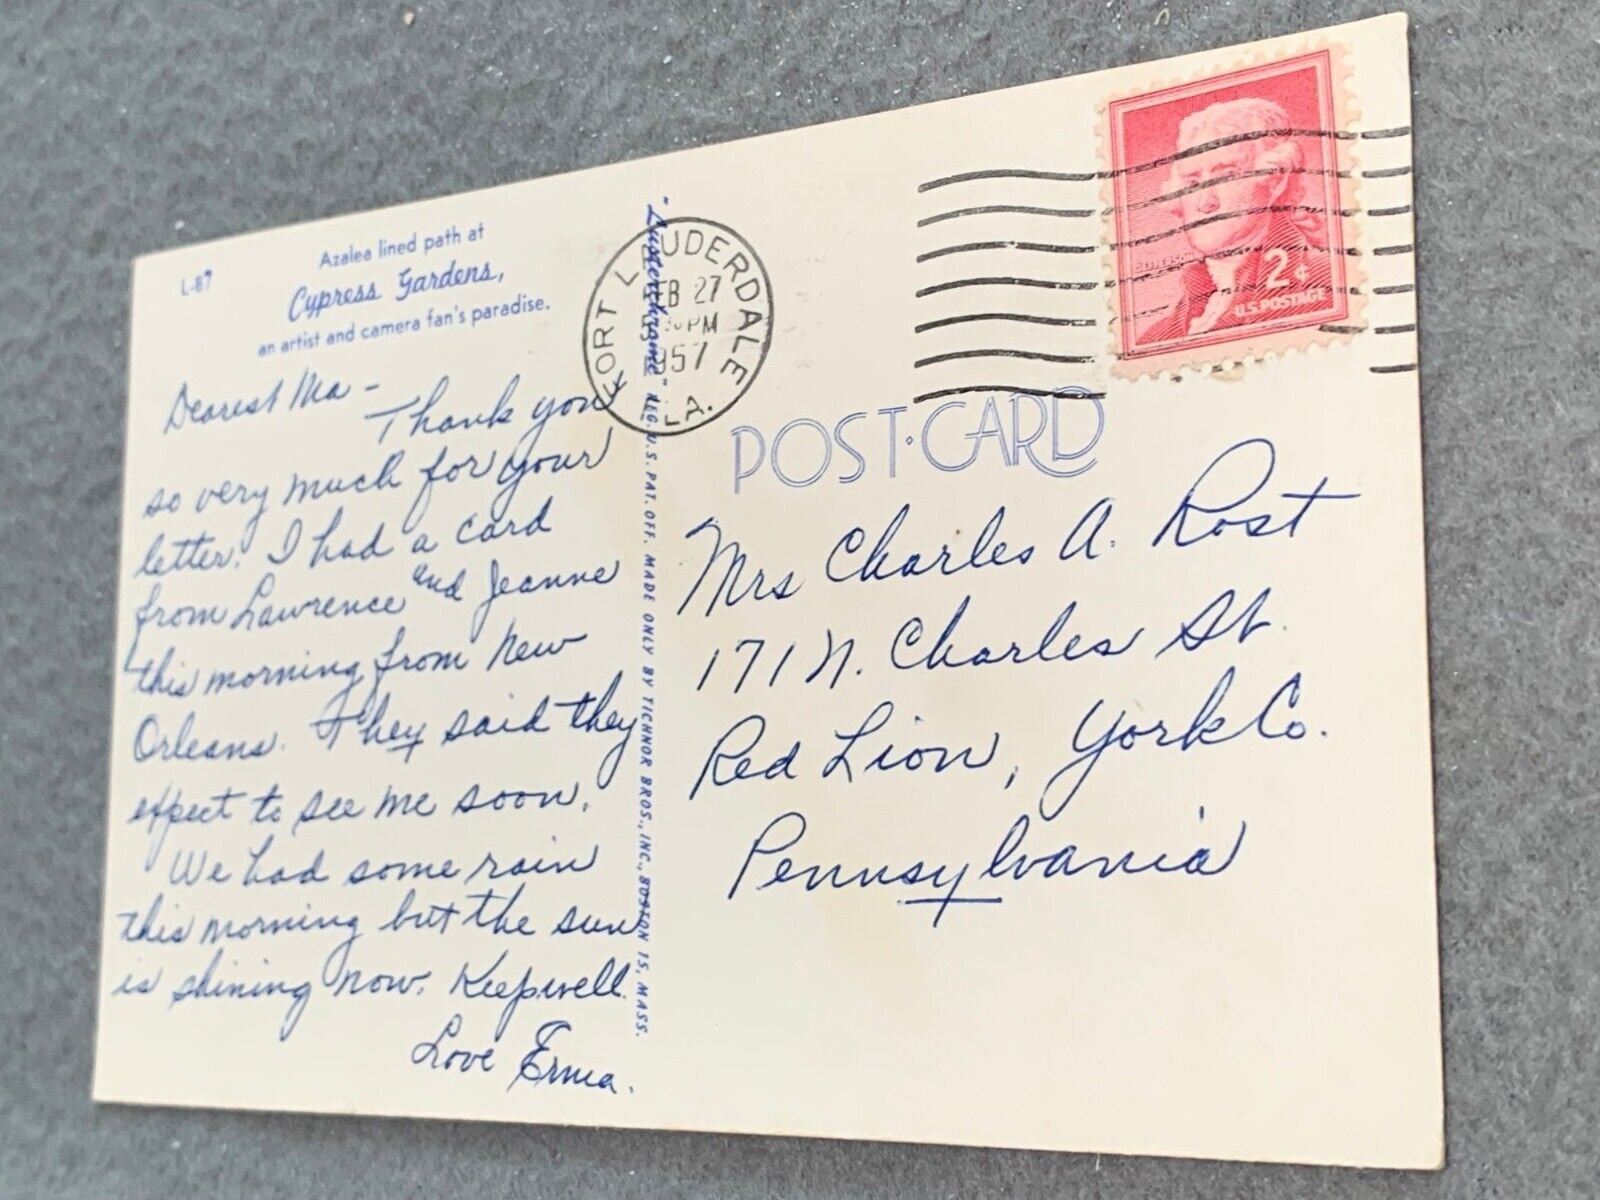 L-87
Azalea lined path at
Cypress Gardens,
an artist and camera fan's paradise.
Dearest Ma -
Thank you
so very much for your
letter. I had a card
from Lawrence and Jeanne
this morning from New
Orleans. They said they
expect to see me soon.
We had some rain
this morning but the sun
is shining now. Keep well.
Love Erma.
"Lusterchrome" REG. U.S. PAT. OFF. MADE ONLY BY TICHNOR BROS., INC., BOSTON 15, MASS.
FORT LAUDERDALE
FEB 27
PM
1957
FLA.
JEFFERSON
2¢
U.S. POSTAGE
POST CARD
Mrs Charles A. Rost
171 N. Charles St.
Red Lion, York Co.
Pennsylvania